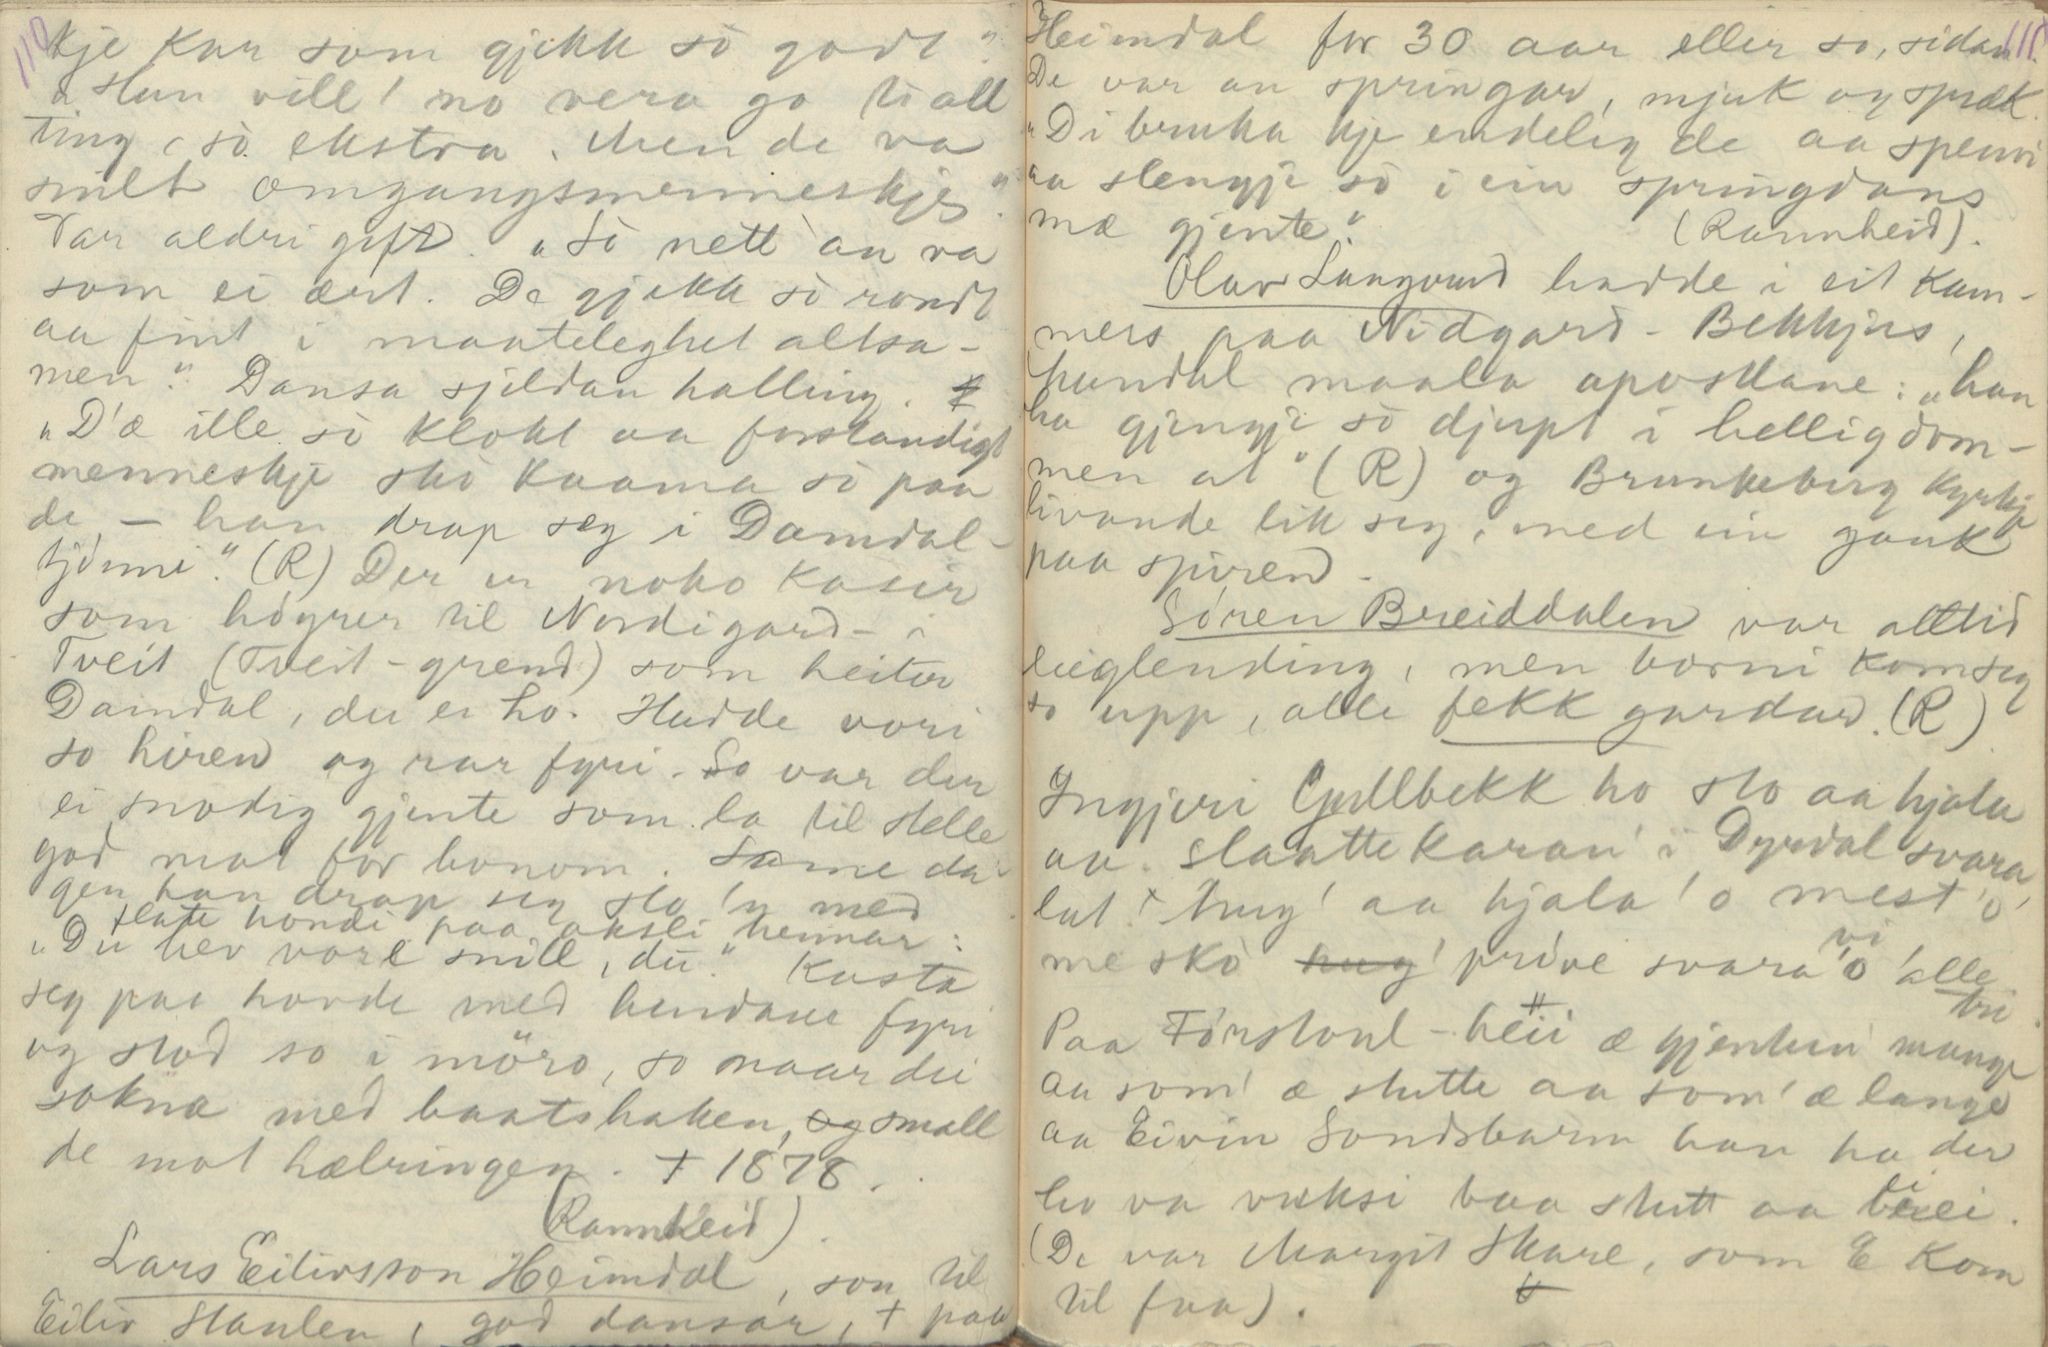 110
kje kar som gjekk sò godt."
"Han vill' no vera go ti all
ting, sò ekstra. Men de va
snilt omgangsmenneskje."
Var aldri gift. "Sò nett an va
som ei ært. De gjekk sò rondt
aa fint i maateleghet altsa-
men." Dansa sjeldan halling.
"D'æ ille sò klokt aa forstandigt
menneskje skò kaama sò paa
de – han drap seg i Damdal-
tjønni." (R) Der er noko kasir
som høyrer til Nordigard i
Tveit (Tveit-grend) som heiter
Damdal, der ei ho. Hadde vori
so hiren og rar fyri. So var der
ei snodig gjente som la til stelle
god mat for honom. Same da-
gen han drap seg slo 'n med
flate hondi paa aksli hennar:
"Du hev vore snill, du." Kasta
seg paa hovde med hendane fyri
og stod so i möro, so naar dei
sokna med baatshaken, og small
de mot hælringen. + 1878.
(Rannheid).
Lars Eilivsson Heimdal, son til
Eiliv Staulen, god dansar, + paa
111.
Heimdal for 30 aar eller so, sidan.
De var an springar, mjuk og spræk.
"Di bruka kje endeleg de aa spenni
aa slengje sò i ein springdans
mæ gjente." (Rannheid).
Olav Langvand hadde i eit kam-
mers paa Nidgard-Bekkjus,
hundal maala apostlane: "han
ha gjengje sò djupt i helligdom-
men at" (R) og Brunkeberg kyrkje
livande lik seg, med ein gauk
paa spiren.
Søren Breiddalen var alltid
leiglending, men borni kom seg
so upp, alle fekk gardar. (R)
Ingjeri Gullbekk ho sto aa hjala
aa slaattekaran' i Dyrdal svara
lat' hug' aa hjala 'o mest 'o
me skò hug' prøve svara 'o vi alle
tri.
Paa Førstoul-heii æ gjentun' mange
aa som' æ stutte aa som' æ lange
aa Eivin Sondsbarm han ha der
ho va vaksi baa stutt aa brei.
(De var Margit Skare, som E kom
til faa).